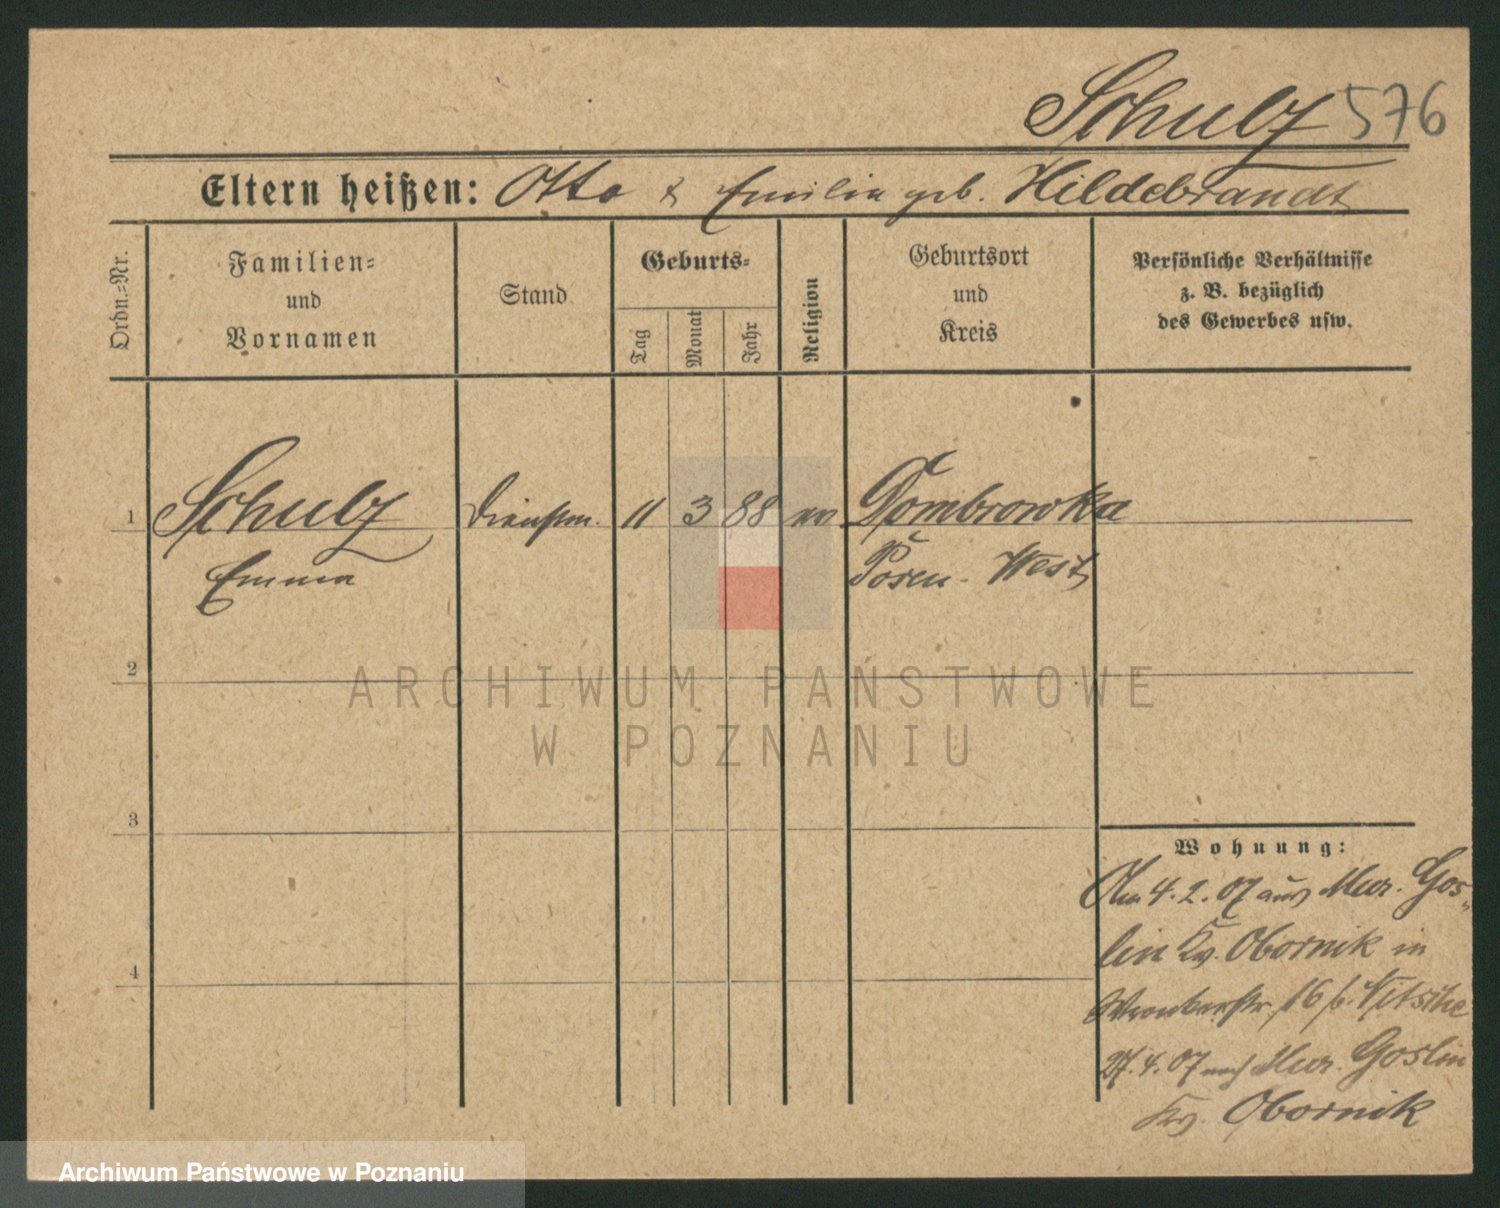 Schulz 576
Eltern heißen: Otto & Emilie geb. Hildebrandt
Ordn.-Nr.
Familien-
und
Vornamen
Stand
Geburts-
Tag
Monat
Jahr
Religion
Geburtsort
und
Kreis
Persönliche Verhältnisse
z. B. bezüglich
des Gewerbes usw.
1 Schulz Dienstm. 11 3 88 ev Dombrowka
Emma Posen-West
2
ARCHIWUM PAŃSTWOWE
W POZNANIU
3
Wohnung:
Am 4.2.07 aus Mur. Gos-
lin Kr. Obornik in
16 b.
27.4.07 nach Mur. Goslin
4
Kr. Obornik
Archiwum Państwowe w Poznaniu